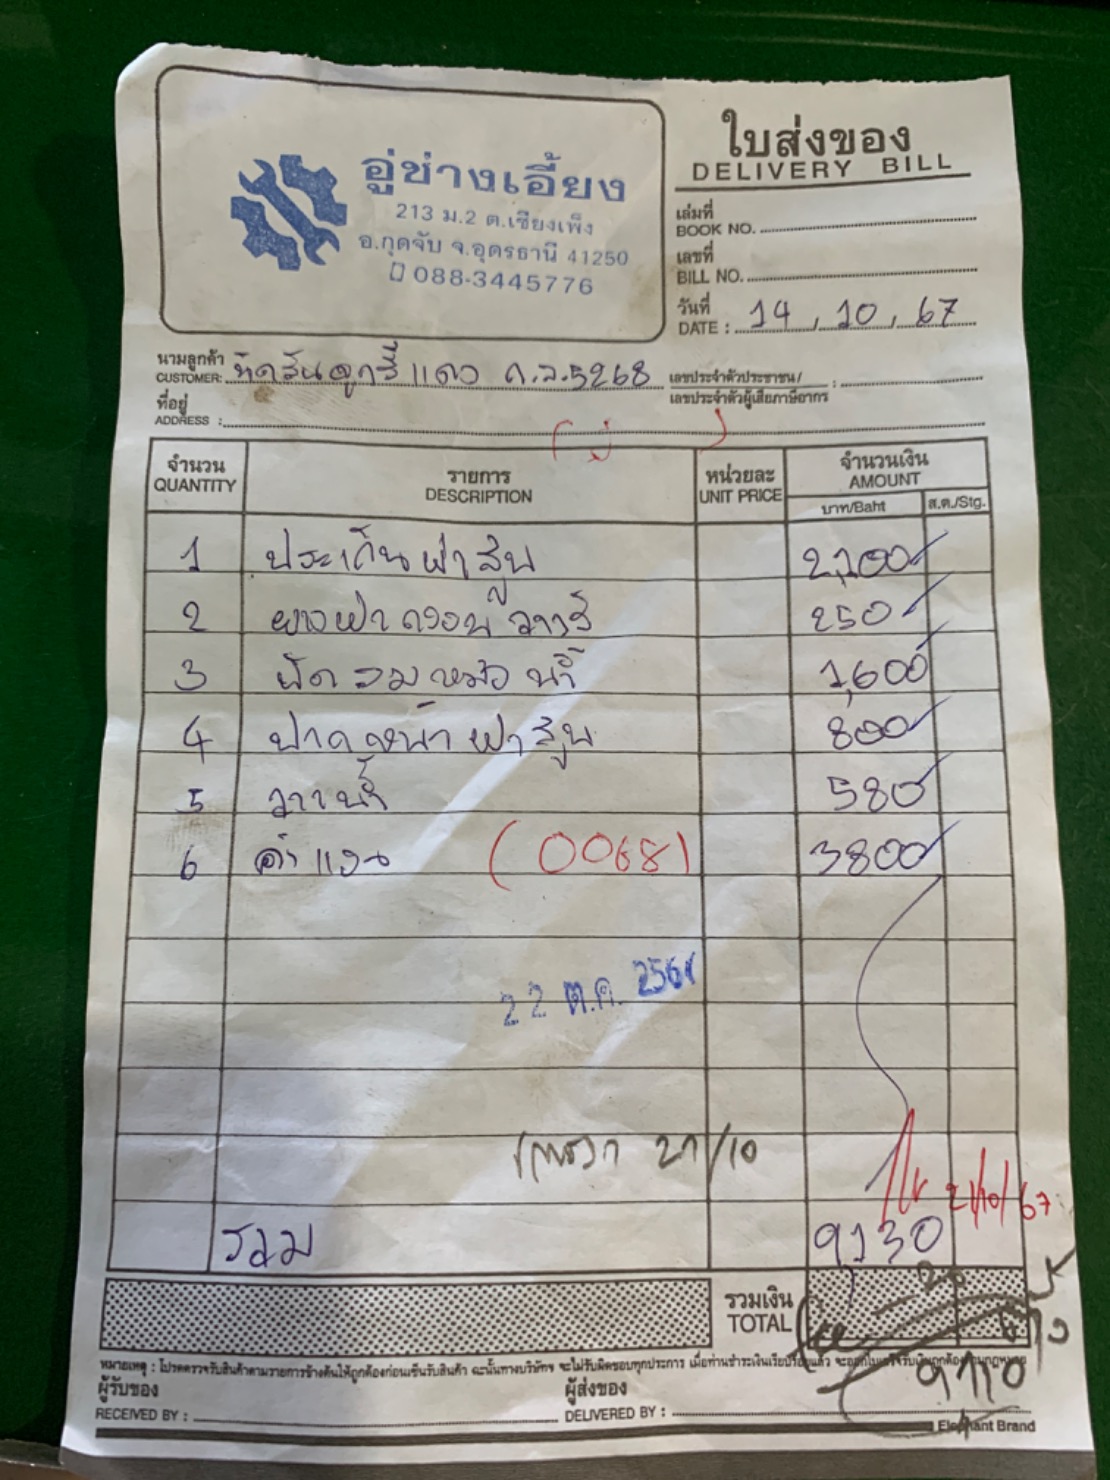 อู่ช่างเอี้ยง
213 ม.2 ต.เชียงเพ็ง
อ.กุดจับ จ.อุดรธานี 41250
088-3445776
ใบส่งของ
DELIVERY BILL
เล่มที่
BOOK NO.
เลขที่
BILL NO.
วันที่
DATE : 14 , 10 , 67
นามลูกค้า
CUSTOMER: 5268
เลขประจำตัวประชาชน/
เลขประจำตัวผู้เสียภาษีอากร :
ที่อยู่
ADDRESS :
จำนวน รายการ หน่วยละ จำนวนเงิน
QUANTITY DESCRIPTION UNIT PRICE AMOUNT
บาท/Baht ส.ต./Stg.
1 ประเก็นฝาสูบ 2,100
2 250
3 พัดลมหม้อน้ำ 1,600
4 ปาดหน้าฝาสูบ 800
5 วาวน้ำ 580
6 ค่าแรง (0068) 3800
22 ต.ค. 256
27/10
21/10/67
รวม 9130
รวมเงิน
TOTAL
20
9110
หมายเหตุ : โปรดตรวจรับสินค้าตามรายการข้างต้นให้ถูกต้องก่อนเซ็นรับสินค้า ฉะนั้นทางบริษัทฯ จะไม่รับผิดชอบทุกประการ เมื่อท่านชำระเงินเรียบร้อยแล้ว
ผู้รับของ
RECEIVED BY :
ผู้ส่งของ
DELIVERED BY :
Elephant Brand